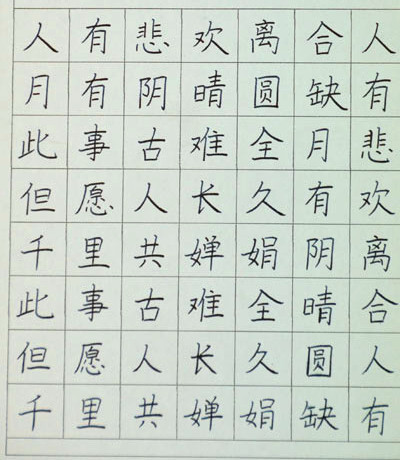 人有悲欢离合人
月有阴晴圆缺有
此事古难全月悲
但愿人长久有欢
千里共婵娟阴离
此事古难全晴合
但愿人长久圆人
千里共婵娟缺有